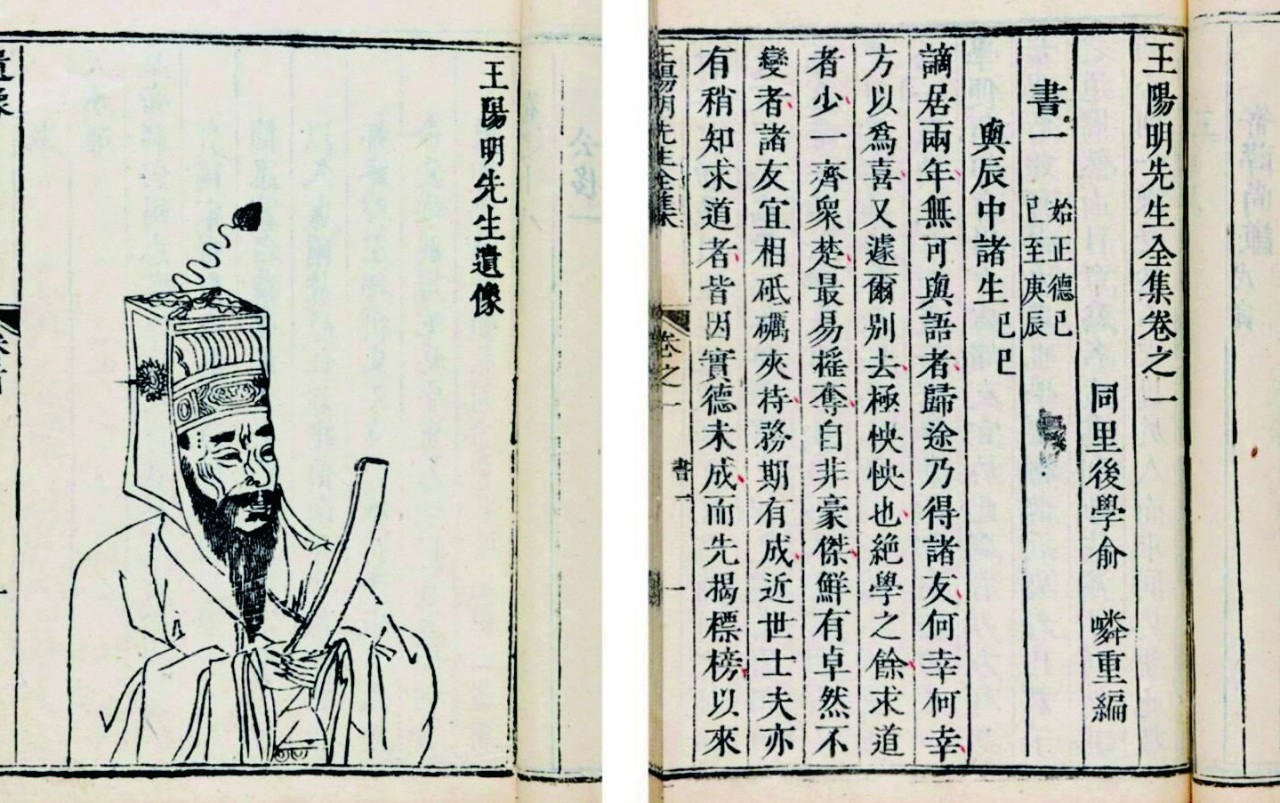 王陽明先生全集卷之一
同里後學俞 嶙重編
書一
始正德己
巳至庚辰
與辰中諸生己巳
謫居兩年無可與語者歸途乃得諸友何幸何幸
方以爲喜又遽爾別去極怏怏也絕學之餘求道
者少一齊衆楚最易搖奪自非豪傑鮮有卓然不
變者諸友宜相砥礪夾持務期有成近世士夫亦
有稍知求道者皆因實德未成而先揭標榜以來
王陽明先生全集
卷之一
書一
一
王陽明先生遺像
遺像